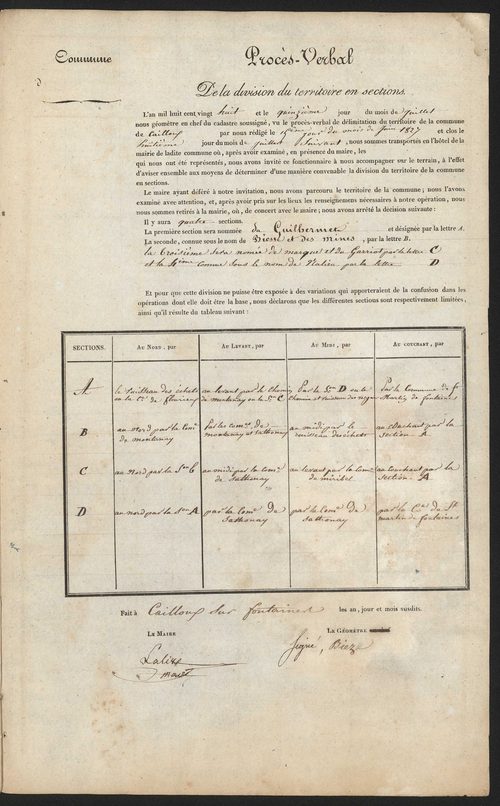 Commune
Procès-Verbal
De la division du territoire en sections.
L'an mil huit cent vingt huit et le quinzième jour du mois de juillet
nous géomètre en chef du cadastre soussigné, vu le procès-verbal de délimitation du territoire de la commune
de Cailloux par nous rédigé le jour du mois de Juin 1827 et clos le
huitième jour du mois de juillet suivant, nous sommes transportés en l'hôtel de la
mairie de ladite commune où, après avoir examiné, en présence du maire, les
qui nous ont été représentés, nous avons invité ce fonctionnaire à nous accompagner sur le terrain, à l'effet
d'aviser ensemble aux moyens de déterminer d'une manière convenable la division du territoire de la commune
en sections.
Le maire ayant déféré à notre invitation, nous avons parcouru le territoire de la commune; nous l'avons
examiné avec attention, et, après avoir pris sur les lieux les renseignemens nécessaires à notre opération, nous
nous sommes retirés à la mairie, où, de concert avec le maire; nous avons arrêté la décision suivante:
Il y aura quatre sections.
La première section sera nommée du Guilhermet et désignée par la lettre A.
La seconde, connue sous le nom de et des Mines, par la lettre B.
la troisième sera nomée de marque et du Garriot par la lettre C
et la 4ème connue sous le nom de par la lettre D
Et pour que cette division ne puisse être exposée à des variations qui apporteraient de la confusion dans les
opérations dont elle doit être la base, nous déclarons que les différentes sections sont respectivement limitées,
ainsi qu'il résulte du tableau suivant:
SECTIONS. Au Nord, par Au Levant, par Au Midi, par Au couchant, par
A le ruisseau des échets au levant par le chemin Par la Son D ou le Par la Commune de St
ou la Cne de fleurieu de montanay ou la Son C chemin et ruisseau Martin de fontaines
B au Nord par la Come Par les Comes de au midi par le au Couchant par la
de montanay montanay et Sathonay ruisseau des échets section A
C au Nord par la Son au midi par la Come au levant par la Come au Couchant par la
de Sathonay de miribel section A
D au nord par la Son A par la Come de par la Come de par la Cne de St
Sathonay Sathonay martin de fontaines
Fait à Cailloux sur fontaines les an, jour et mois susdits.
Le Maire Le Géomètre
Signé,
maire